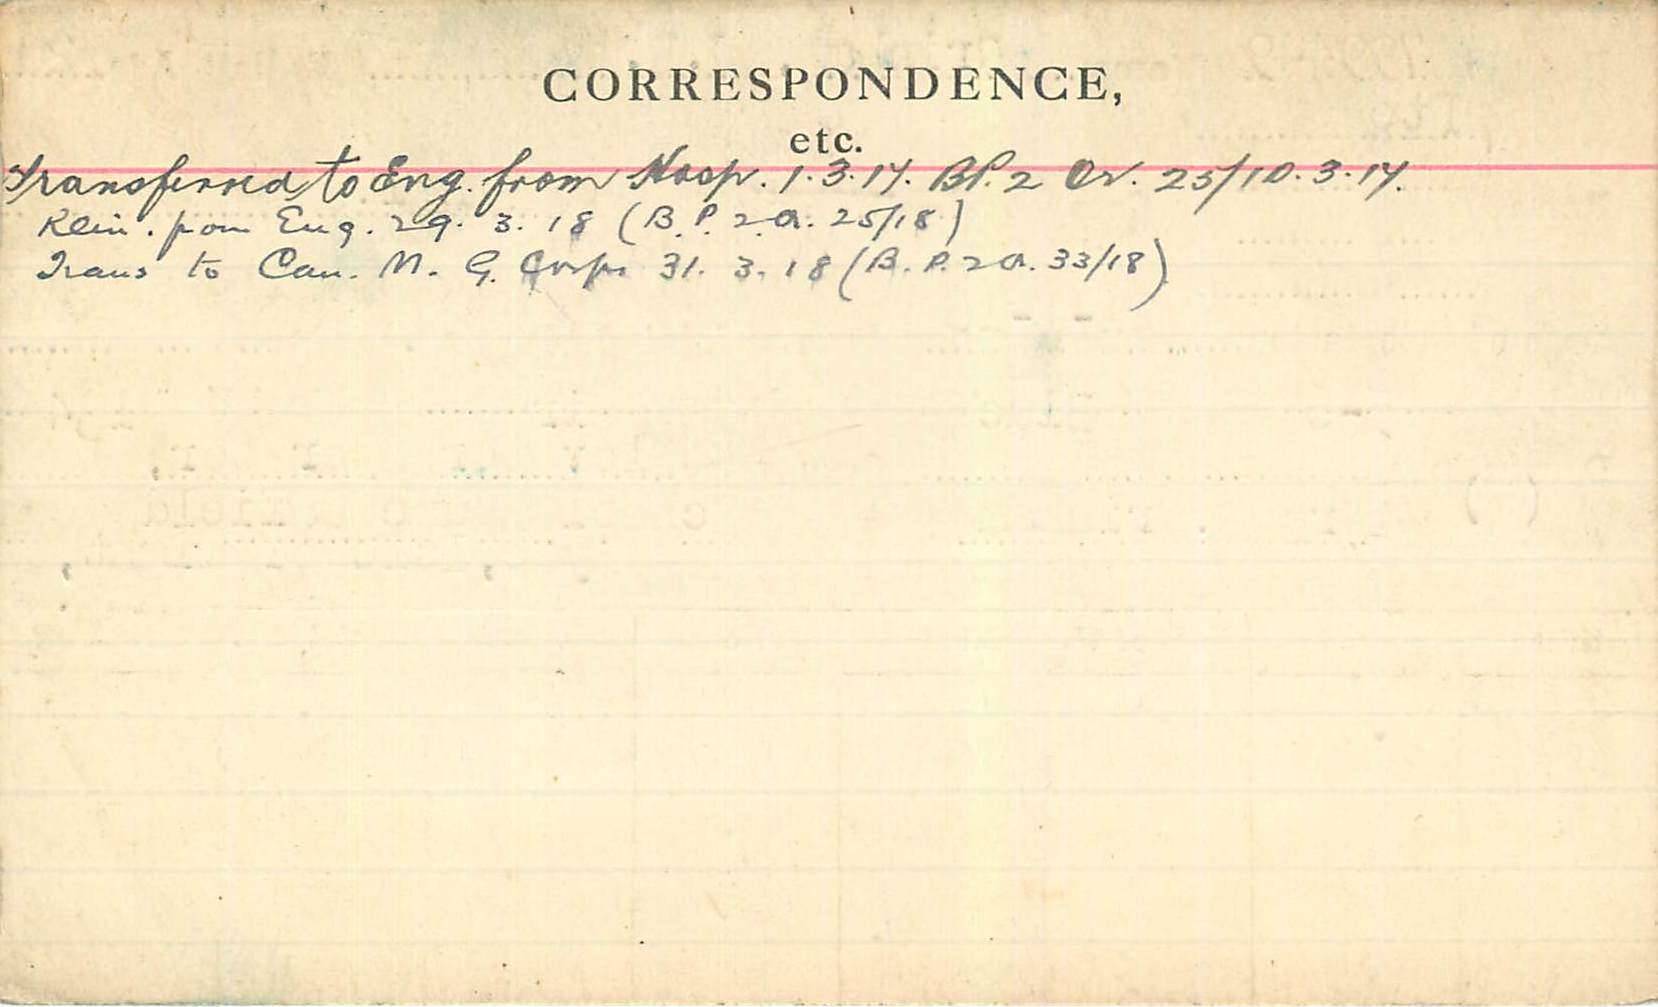 CORRESPONDENCE,
etc.
Transferred to Eng. from Hosp. 1.3.17. BP. 2 Or. 25/10.3.17.
Rein. from Eng. 29. 3. 18 (B.P. 2.a. 25/18)
Trans to Can. M. G. Corps 31. 3. 18 (B.P. 2a. 33/18)